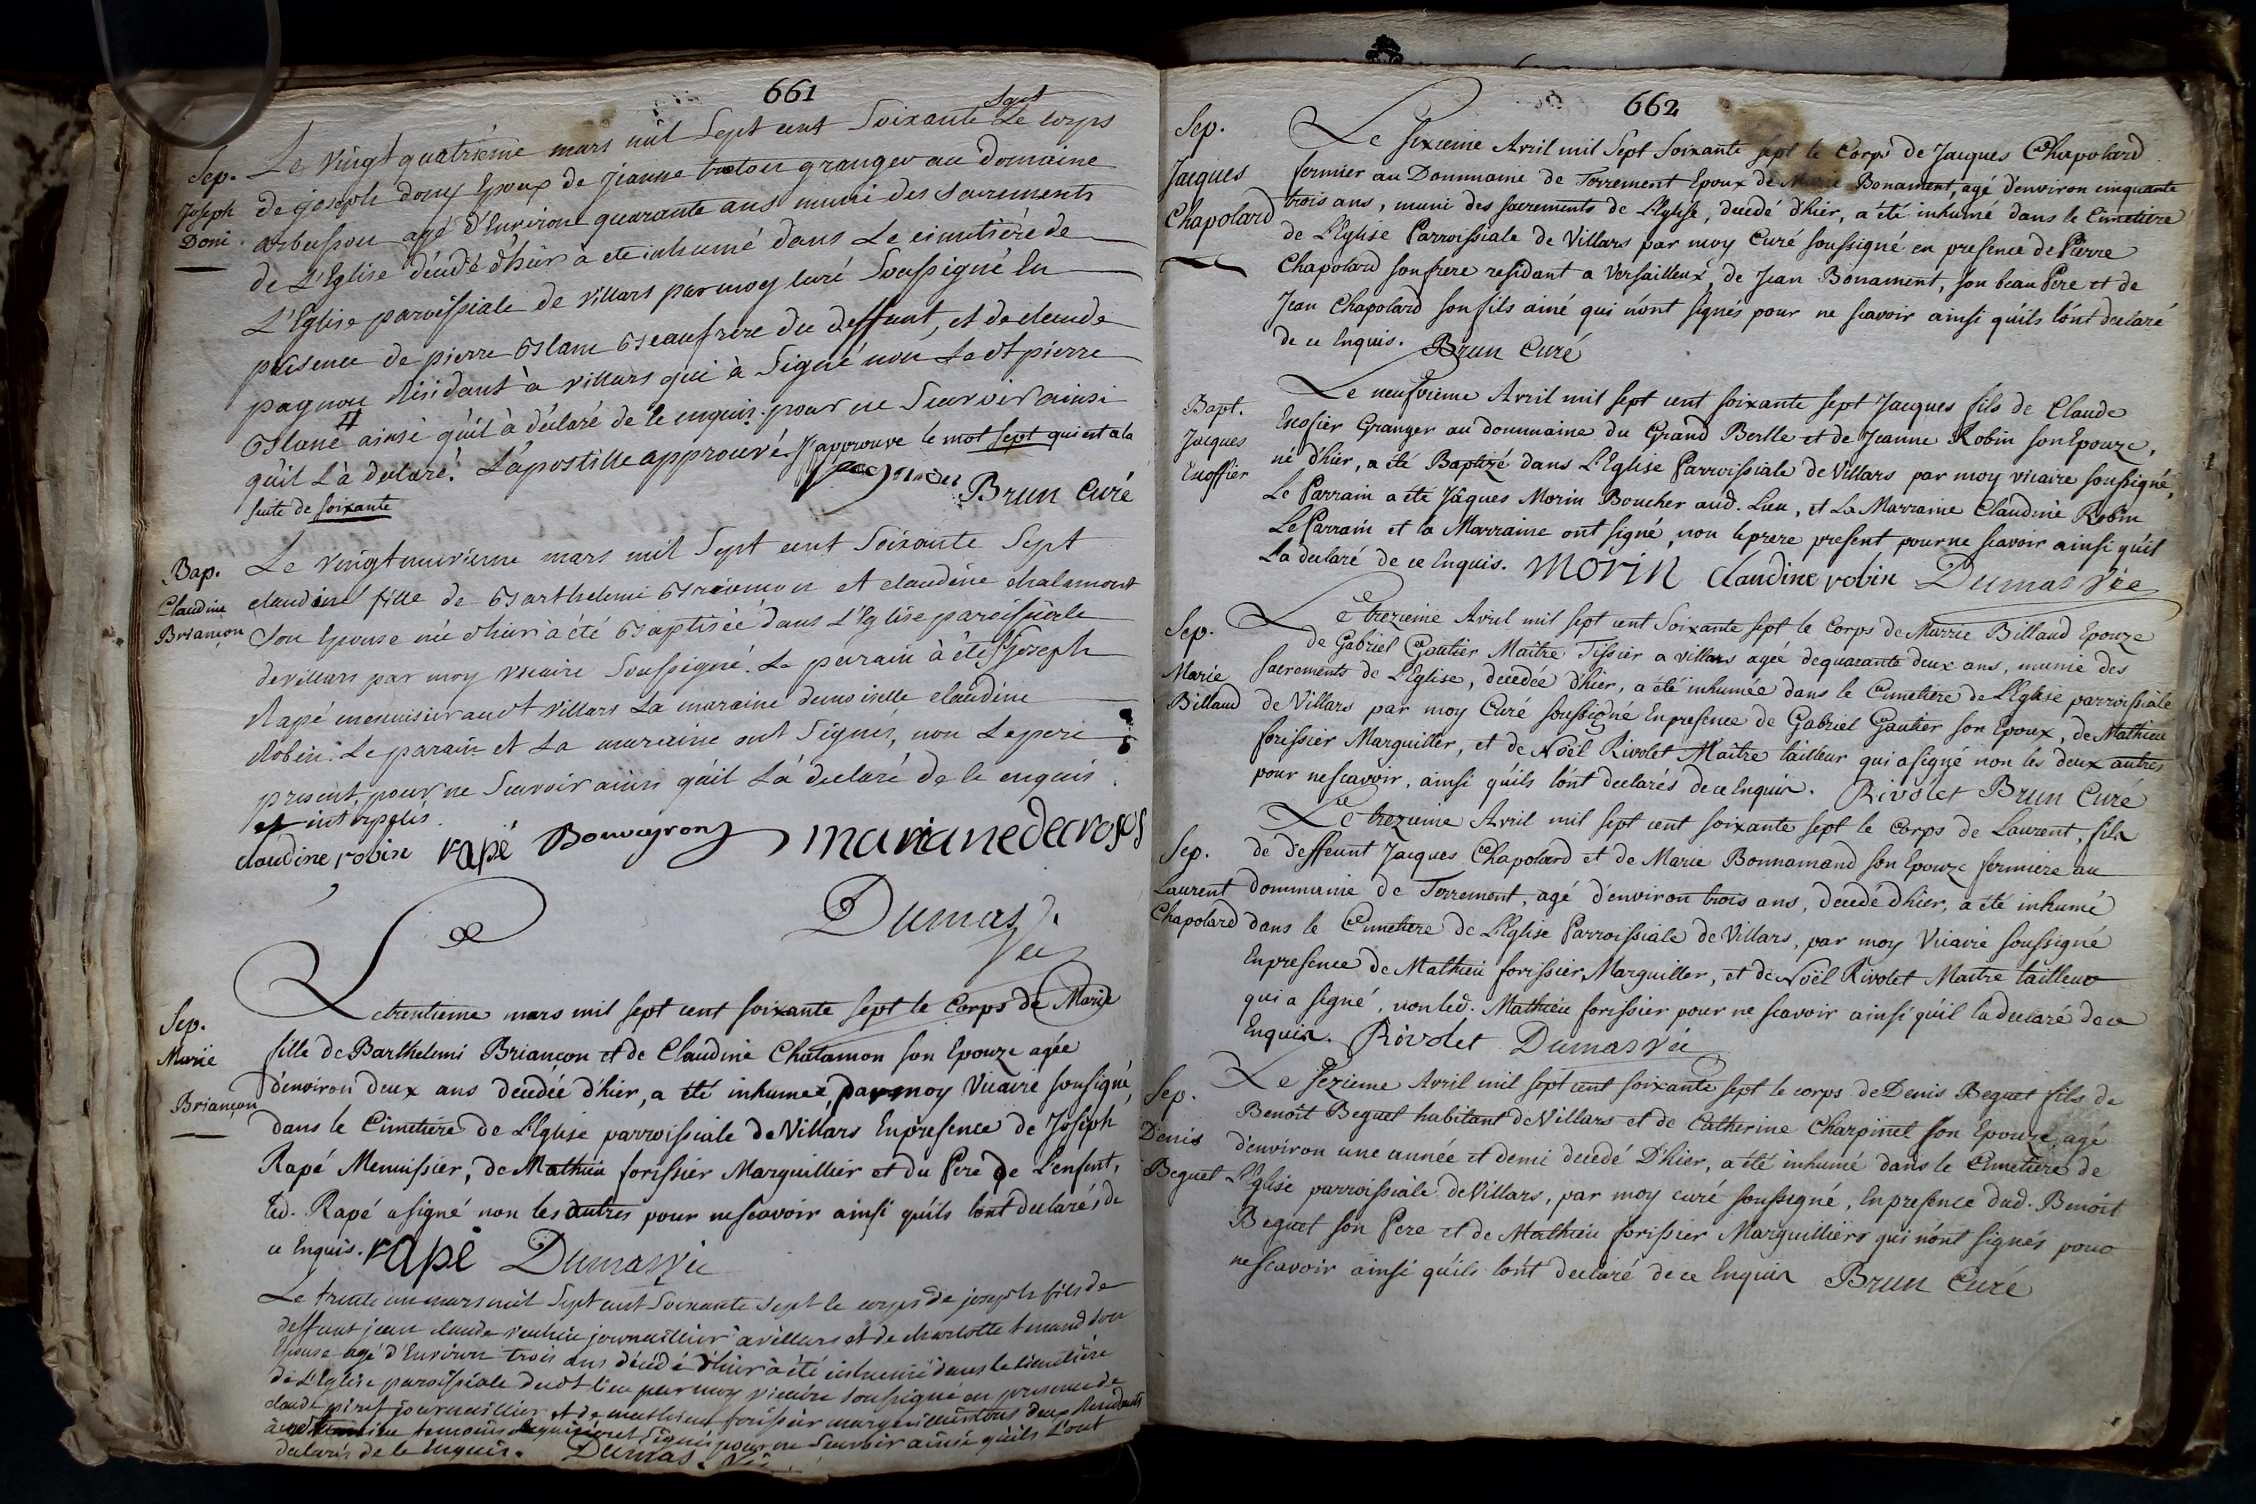 661
Sep.
Joseph
Doni.
sept
Le vingt quatrieme mars mil sept cent soixante Le corps
de joseph dony Epoux de jeanne granger au Domaine
arbusson agé d'Environ quarante ans muni des sacrements
de L'Eglise décedé d'hier à eté inhumé dans Le cimetière de
L'Eglise paroissiale de villars par moy curé soussigné En
présence de pierre Blanc Beaufrere du deffunt, et de claude
pagnon Résidant à villars qui à signé non Ledt pierre
Blanc # ainsi qu'il à déclaré de ce enquis. pour ne scavoir ainsi
qu'il L'à declaré. L'apostille approuvé. J'approuve le mot sept qui est a la
suite de soixante
Brun Curé
Bap.
Claudine
Briançon
Le vingt neuvieme mars mil sept cent soixante sept
claudine fille de Barthelemi Briançon et claudine chalamont
son Epouse née d'hier à été Baptisée dans L'Eglise paroissiale
de villars par moy vicaire soussigné. Le parain à été Sr joseph
Rapé menuisier audt villars La maraine demoiselle claudine
Robin. Le parain et La maraine ont signés, non Le pere
présent, pour ne scavoir ainsi qu'il L'a declaré de ce enquis
et interpelés.
claudine robin rapé Bouveyron marianedecroses
Dumas
vic
Sep.
Marie
Briançon
Le trentieme mars mil sept cent soixante sept le Corps de Marie
fille de Barthelemi Briançon et de Claudine Chalamon son Epouze agée
d'environ deux ans décedée d'hier, a été inhumée, par moy Vicaire sousigné,
dans le Cimetiere de L'Eglise parroissiale de Villars Enpresence de Joseph
Rapé Menuissier, de Mathieu forissier Marguillier et du Pere de L'enfent,
Led. Rapé a signé non les autres pour ne scavoir ainsi qu'ils l'ont declarés de
ce Enquis. rapé Dumas vic
Le trente un mars mil sept cent soixante sept le corps de joseph fils de
deffunt jean claude journallier a villars et de charlotte son
Epouse agé d'Environ trois ans décédé d'hier à été inhumé dans le cimetière
de L'Eglise paroissiale dudt lieu par moy vicaire soussigné en presence de
claude journallier et de mathieu forissier marguillier tous deux Residents
temoins requis non signé pour ne scavoir ainsi qu'ils L'ont
declarés de ce Enquis. Dumas. vic
662
Sep.
Jacques
Chapolard
Le sixieme Avril mil Sept Soixante sept le Corps de Jacques Chapolard
fermier au Dommaine de Torrement Epoux de Marie Bonament, agé d'environ cinquante
trois ans, muni des sacrements de L'Eglise, decedé d'hier, a été inhumé dans le Cimetiere
de L'Eglise Parroissiale de Villars par moy Curé soussigné en presence de Pierre
Chapolard son frere residant a Versailleux, de Jean Bonament, son beau Pere et de
Jean Chapolard son fils ainé qui n'ont signés pour ne scavoir ainsi qu'ils l'ont declaré
de ce Enquis. Brun Curé
Bapt.
Jacques
Encoffier
Le neufvieme Avril mil sept cent soixante sept Jacques fils de Claude
Encofier Granger au dommaine du Grand Berlle et de Jeanne Robin son Epouze,
né d'hier, a été Baptizé dans L'Eglise Parroissiale de Villars par moy vicaire soussigné,
Le Parrain a été Jâques Morin Boucher aud. Lieu, et La Marraine Claudine Robin
Le Parrain et la Marraine ont signé, non le pere present pour ne scavoir ainsi qu'il
La declaré de ce Enquis. MoriN claudine robin Dumas Vic
Sep.
Marie
Billaud
Le trezieme Avril mil sept cent Soixante sept le Corps de Marrie Billaud Epouze
de Gabriel Gautier Maître Tissier a villars agée de quarante deux ans, munie des
sacrements de L'Eglise, decedée d'hier, a été inhumée dans le Cimetiere de L'Eglise parroissiale
de Villars par moy Curé soussigné Enpresence de Gabriel Gautier son Epoux, de Mathieu
forissier Marguillier, et de Noël Rivolet Maitre tailleur qui a signé non les deux autres
pour ne scavoir, ainsi qu'ils l'ont declarés de ce Enquis. Rivolet Brun Curé
Sep.
Laurent
Chapolard
Le trezieme Avril mil sept cent soixante sept le Corps de Laurent, fils
de deffeunt Jacques Chapolard et de Marie Bonnamand son Epouze fermiere au
dommaine de Torrement, agé d'environ trois ans, decedé d'hier, a été inhumé
dans le Cimetiere de L'Eglise Parroissiale de Villars, par moy Vicaire soussigné
Enpresence de Mathieu forissier Marguillier, et de Noël Rivolet Maitre tailleur
qui a signé, non led. Mathieu forissier pour ne scavoir ainsi qu'il la declaré de ce
Enquis. Rivolet Dumas vic
Sep.
Denis
Beguet
Le sezieme Avril mil sept cent soixante sept le corps de Denis Beguet fils de
Benoît Beguet habitant de Villars et de Catherine Charpinet son Epouze, agé
d'environ une année et demi decedé D'hier, a été inhumé dans le Cimetiere de
L'Eglise parroissiale de Villars, par moy curé soussigné, Enpresence dud. Benoit
Beguet son Pere et de Mathieu forissier Marguilliers qui n'ont signés pour
ne scavoir ainsi qu'ils l'ont declaré de ce Enquis Brun Curé